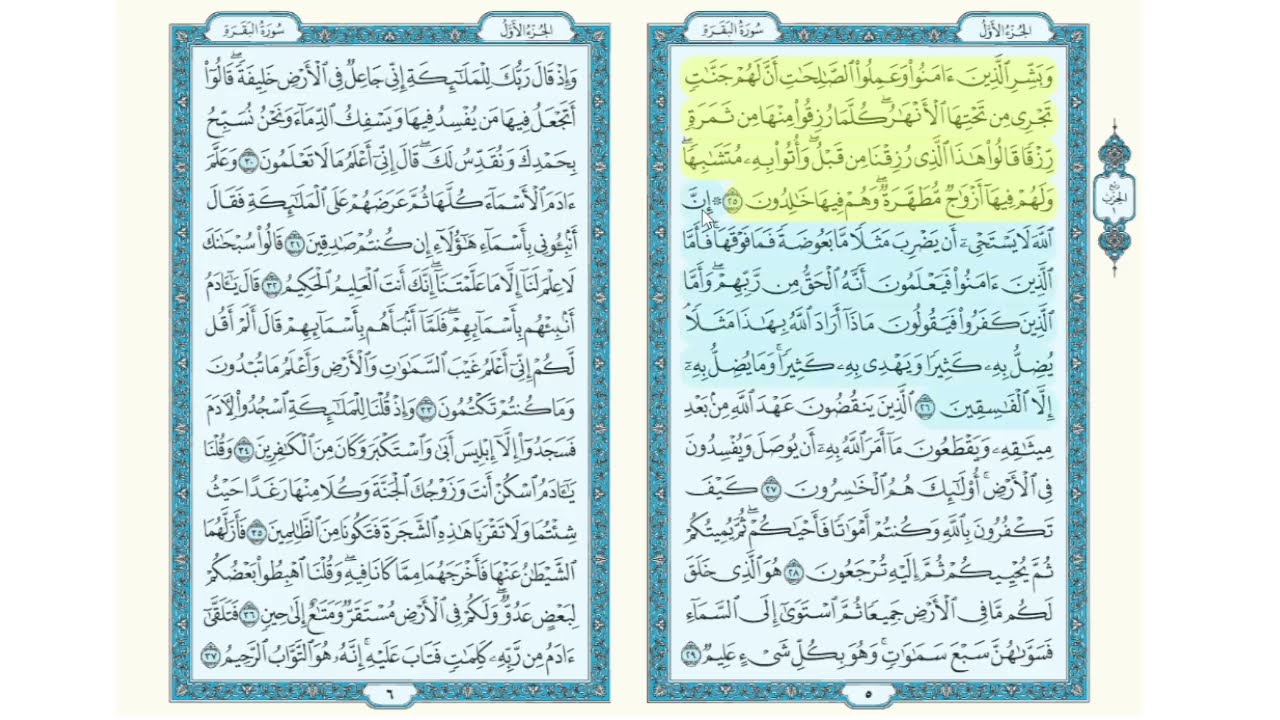 الجزء الأول
سورة البقرة
وَبَشِّرِ الَّذِينَ ءَامَنُوا۟ وَعَمِلُوا۟ الصَّـٰلِحَـٰتِ أَنَّ لَهُمْ جَنَّـٰتٍ
تَجْرِى مِن تَحْتِهَا الْأَنْهَـٰرُ ۖ كُلَّمَا رُزِقُوا۟ مِنْهَا مِن ثَمَرَةٍ
رِّزْقًا قَالُوا۟ هَـٰذَا الَّذِى رُزِقْنَا مِن قَبْلُ ۖ وَأُتُوا۟ بِهِۦ مُتَشَـٰبِهًا ۖ
وَلَهُمْ فِيهَآ أَزْوَٰجٌ مُّطَهَّرَةٌ ۖ وَهُمْ فِيهَا خَـٰلِدُونَ ٢٥ ۞ إِنَّ
اللَّهَ لَا يَسْتَحْىِۦٓ أَن يَضْرِبَ مَثَلًا مَّا بَعُوضَةً فَمَا فَوْقَهَا ۚ فَأَمَّا
الَّذِينَ ءَامَنُوا۟ فَيَعْلَمُونَ أَنَّهُ الْحَقُّ مِن رَّبِّهِمْ ۖ وَأَمَّا
الَّذِينَ كَفَرُوا۟ فَيَقُولُونَ مَاذَآ أَرَادَ اللَّهُ بِهَـٰذَا مَثَلًا ۘ
يُضِلُّ بِهِۦ كَثِيرًا وَيَهْدِى بِهِۦ كَثِيرًا ۚ وَمَا يُضِلُّ بِهِۦٓ
إِلَّا الْفَـٰسِقِينَ ٢٦ الَّذِينَ يَنقُضُونَ عَهْدَ اللَّهِ مِنۢ بَعْدِ
مِيثَـٰقِهِۦ وَيَقْطَعُونَ مَآ أَمَرَ اللَّهُ بِهِۦٓ أَن يُوصَلَ وَيُفْسِدُونَ
فِى الْأَرْضِ ۚ أُو۟لَـٰٓئِكَ هُمُ الْخَـٰسِرُونَ ٢٧ كَيْفَ
تَكْفُرُونَ بِاللَّهِ وَكُنتُمْ أَمْوَٰتًا فَأَحْيَـٰكُمْ ۖ ثُمَّ يُمِيتُكُمْ
ثُمَّ يُحْيِيكُمْ ثُمَّ إِلَيْهِ تُرْجَعُونَ ٢٨ هُوَ الَّذِى خَلَقَ
لَكُم مَّا فِى الْأَرْضِ جَمِيعًا ثُمَّ اسْتَوَىٰٓ إِلَى السَّمَآءِ
فَسَوَّىٰهُنَّ سَبْعَ سَمَـٰوَٰتٍ ۚ وَهُوَ بِكُلِّ شَىْءٍ عَلِيمٌ ٢٩
٥
ربع
الحزب
١
الجزء الأول
سورة البقرة
وَإِذْ قَالَ رَبُّكَ لِلْمَلَـٰٓئِكَةِ إِنِّى جَاعِلٌ فِى الْأَرْضِ خَلِيفَةً ۖ قَالُوٓا۟
أَتَجْعَلُ فِيهَا مَن يُفْسِدُ فِيهَا وَيَسْفِكُ الدِّمَآءَ وَنَحْنُ نُسَبِّحُ
بِحَمْدِكَ وَنُقَدِّسُ لَكَ ۖ قَالَ إِنِّىٓ أَعْلَمُ مَا لَا تَعْلَمُونَ ٣٠ وَعَلَّمَ
ءَادَمَ الْأَسْمَآءَ كُلَّهَا ثُمَّ عَرَضَهُمْ عَلَى الْمَلَـٰٓئِكَةِ فَقَالَ
أَنۢبِـُٔونِى بِأَسْمَآءِ هَـٰٓؤُلَآءِ إِن كُنتُمْ صَـٰدِقِينَ ٣١ قَالُوا۟ سُبْحَـٰنَكَ
لَا عِلْمَ لَنَآ إِلَّا مَا عَلَّمْتَنَآ ۖ إِنَّكَ أَنتَ الْعَلِيمُ الْحَكِيمُ ٣٢ قَالَ يَـٰٓـَٔادَمُ
أَنۢبِئْهُم بِأَسْمَآئِهِمْ ۖ فَلَمَّآ أَنۢبَأَهُم بِأَسْمَآئِهِمْ قَالَ أَلَمْ أَقُل
لَّكُمْ إِنِّىٓ أَعْلَمُ غَيْبَ السَّمَـٰوَٰتِ وَالْأَرْضِ وَأَعْلَمُ مَا تُبْدُونَ
وَمَا كُنتُمْ تَكْتُمُونَ ٣٣ وَإِذْ قُلْنَا لِلْمَلَـٰٓئِكَةِ اسْجُدُوا۟ لِـَٔادَمَ
فَسَجَدُوٓا۟ إِلَّآ إِبْلِيسَ أَبَىٰ وَاسْتَكْبَرَ وَكَانَ مِنَ الْكَـٰفِرِينَ ٣٤ وَقُلْنَا
يَـٰٓـَٔادَمُ اسْكُنْ أَنتَ وَزَوْجُكَ الْجَنَّةَ وَكُلَا مِنْهَا رَغَدًا حَيْثُ
شِئْتُمَا وَلَا تَقْرَبَا هَـٰذِهِ الشَّجَرَةَ فَتَكُونَا مِنَ الظَّـٰلِمِينَ ٣٥ فَأَزَلَّهُمَا
الشَّيْطَـٰنُ عَنْهَا فَأَخْرَجَهُمَا مِمَّا كَانَا فِيهِ ۖ وَقُلْنَا اهْبِطُوا۟ بَعْضُكُمْ
لِبَعْضٍ عَدُوٌّ ۖ وَلَكُمْ فِى الْأَرْضِ مُسْتَقَرٌّ وَمَتَـٰعٌ إِلَىٰ حِينٍ ٣٦ فَتَلَقَّىٰٓ
ءَادَمُ مِن رَّبِّهِۦ كَلِمَـٰتٍ فَتَابَ عَلَيْهِ ۚ إِنَّهُۥ هُوَ التَّوَّابُ الرَّحِيمُ ٣٧
٦